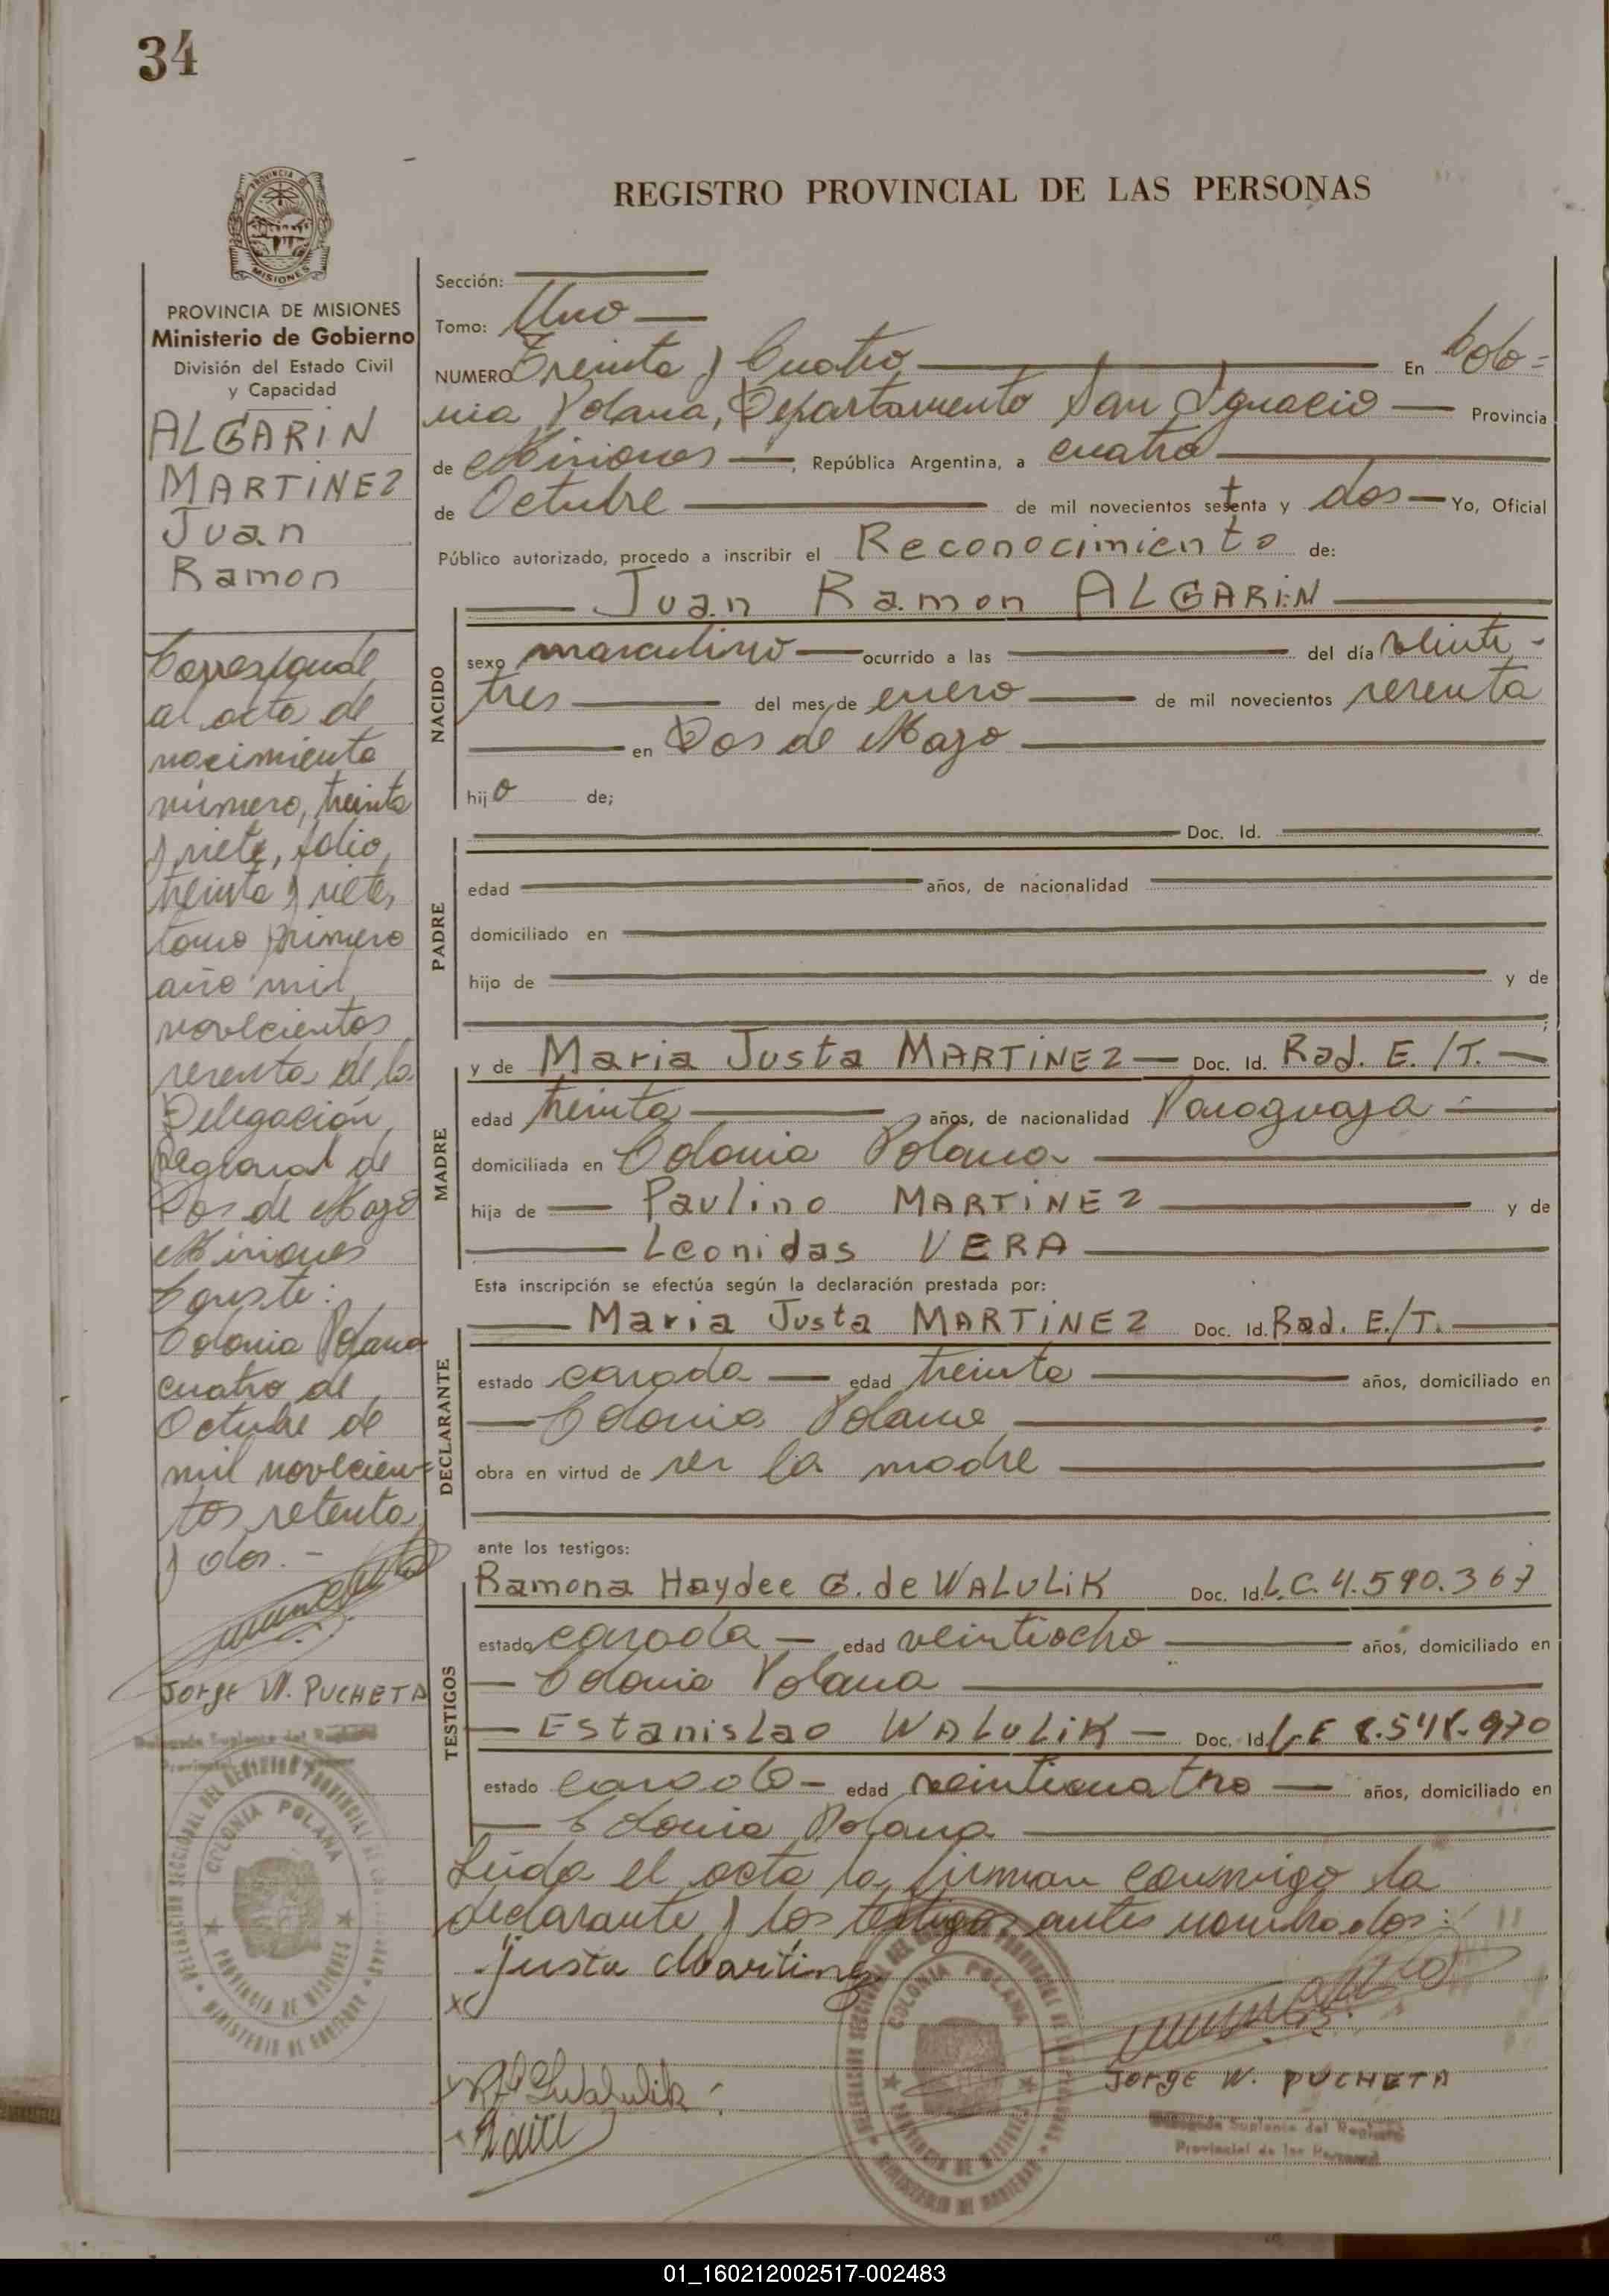 34
REGISTRO PROVINCIAL DE LAS PERSONAS
PROVINCIA DE MISIONES
Ministerio de Gobierno
División del Estado Civil
y Capacidad
ALGARIN
MARTINEZ
Juan
Ramon
Corresponde
al acta de
nacimiento
número, treinta
y siete, folio,
treinta y siete,
tomo primero
año mil
novecientos
sesenta de la
Delegación
Regional de
Dos de Mayo
Misiones
Conste:
Colonia Polana
cuatro de
Octubre de
mil novecien=
tos setenta
y dos.-
Jorge W. PUCHETA
Delegado Suplente del Registro
Sección:
Tomo: Uno
NUMERO Treinta y Cuatro En Colo=
nia Polana, Departamento San Ignacio Provincia
de Misiones, República Argentina, a cuatro
de Octubre de mil novecientos setenta y dos Yo, Oficial
Público autorizado, procedo a inscribir el Reconocimiento de:
NACIDO
Juan Ramon ALGARIN
sexo masculino ocurrido a las del día veinti-
tres del mes de enero de mil novecientos sesenta
en Dos de Mayo
hijo de;
PADRE
Doc. Id.
edad años, de nacionalidad
domiciliado en
hijo de y de
;
MADRE
y de Maria Justa MARTINEZ Doc. Id. Rad. E./T.
edad treinta años, de nacionalidad Paraguaya
domiciliada en Colonia Polana
hija de Paulino MARTINEZ y de
Leonidas VERA
Esta inscripción se efectúa según la declaración prestada por:
DECLARANTE
Maria Justa MARTINEZ Doc. Id. Rad. E./T.
estado casada edad treinta años, domiciliado en
Colonia Polana ;
obra en virtud de ser la madre
ante los testigos:
TESTIGOS
Ramona Haydee G. de WALULIK Doc. Id. L.C. 4.590.367
estado casada edad veintiocho años, domiciliado en
Colonia Polana
Estanislao WALULIK Doc. Id. L.E 8.548.970
estado casado edad veinticuatro años, domiciliado en
Colonia Polana
Leída el acta la firman conmigo la
declarante y los testigos antes nombrados:
Justa Martinez
x
Jorge W. PUCHETA
Delegado Suplente del Registro
Provincial de las Personas
DELEGACION SECCIONAL DEL REGISTRO PROVINCIAL DE LAS PERSONAS
COLONIA POLANA
PROVINCIA DE MISIONES
MINISTERIO DE GOBIERNO
01_160212002517-002483